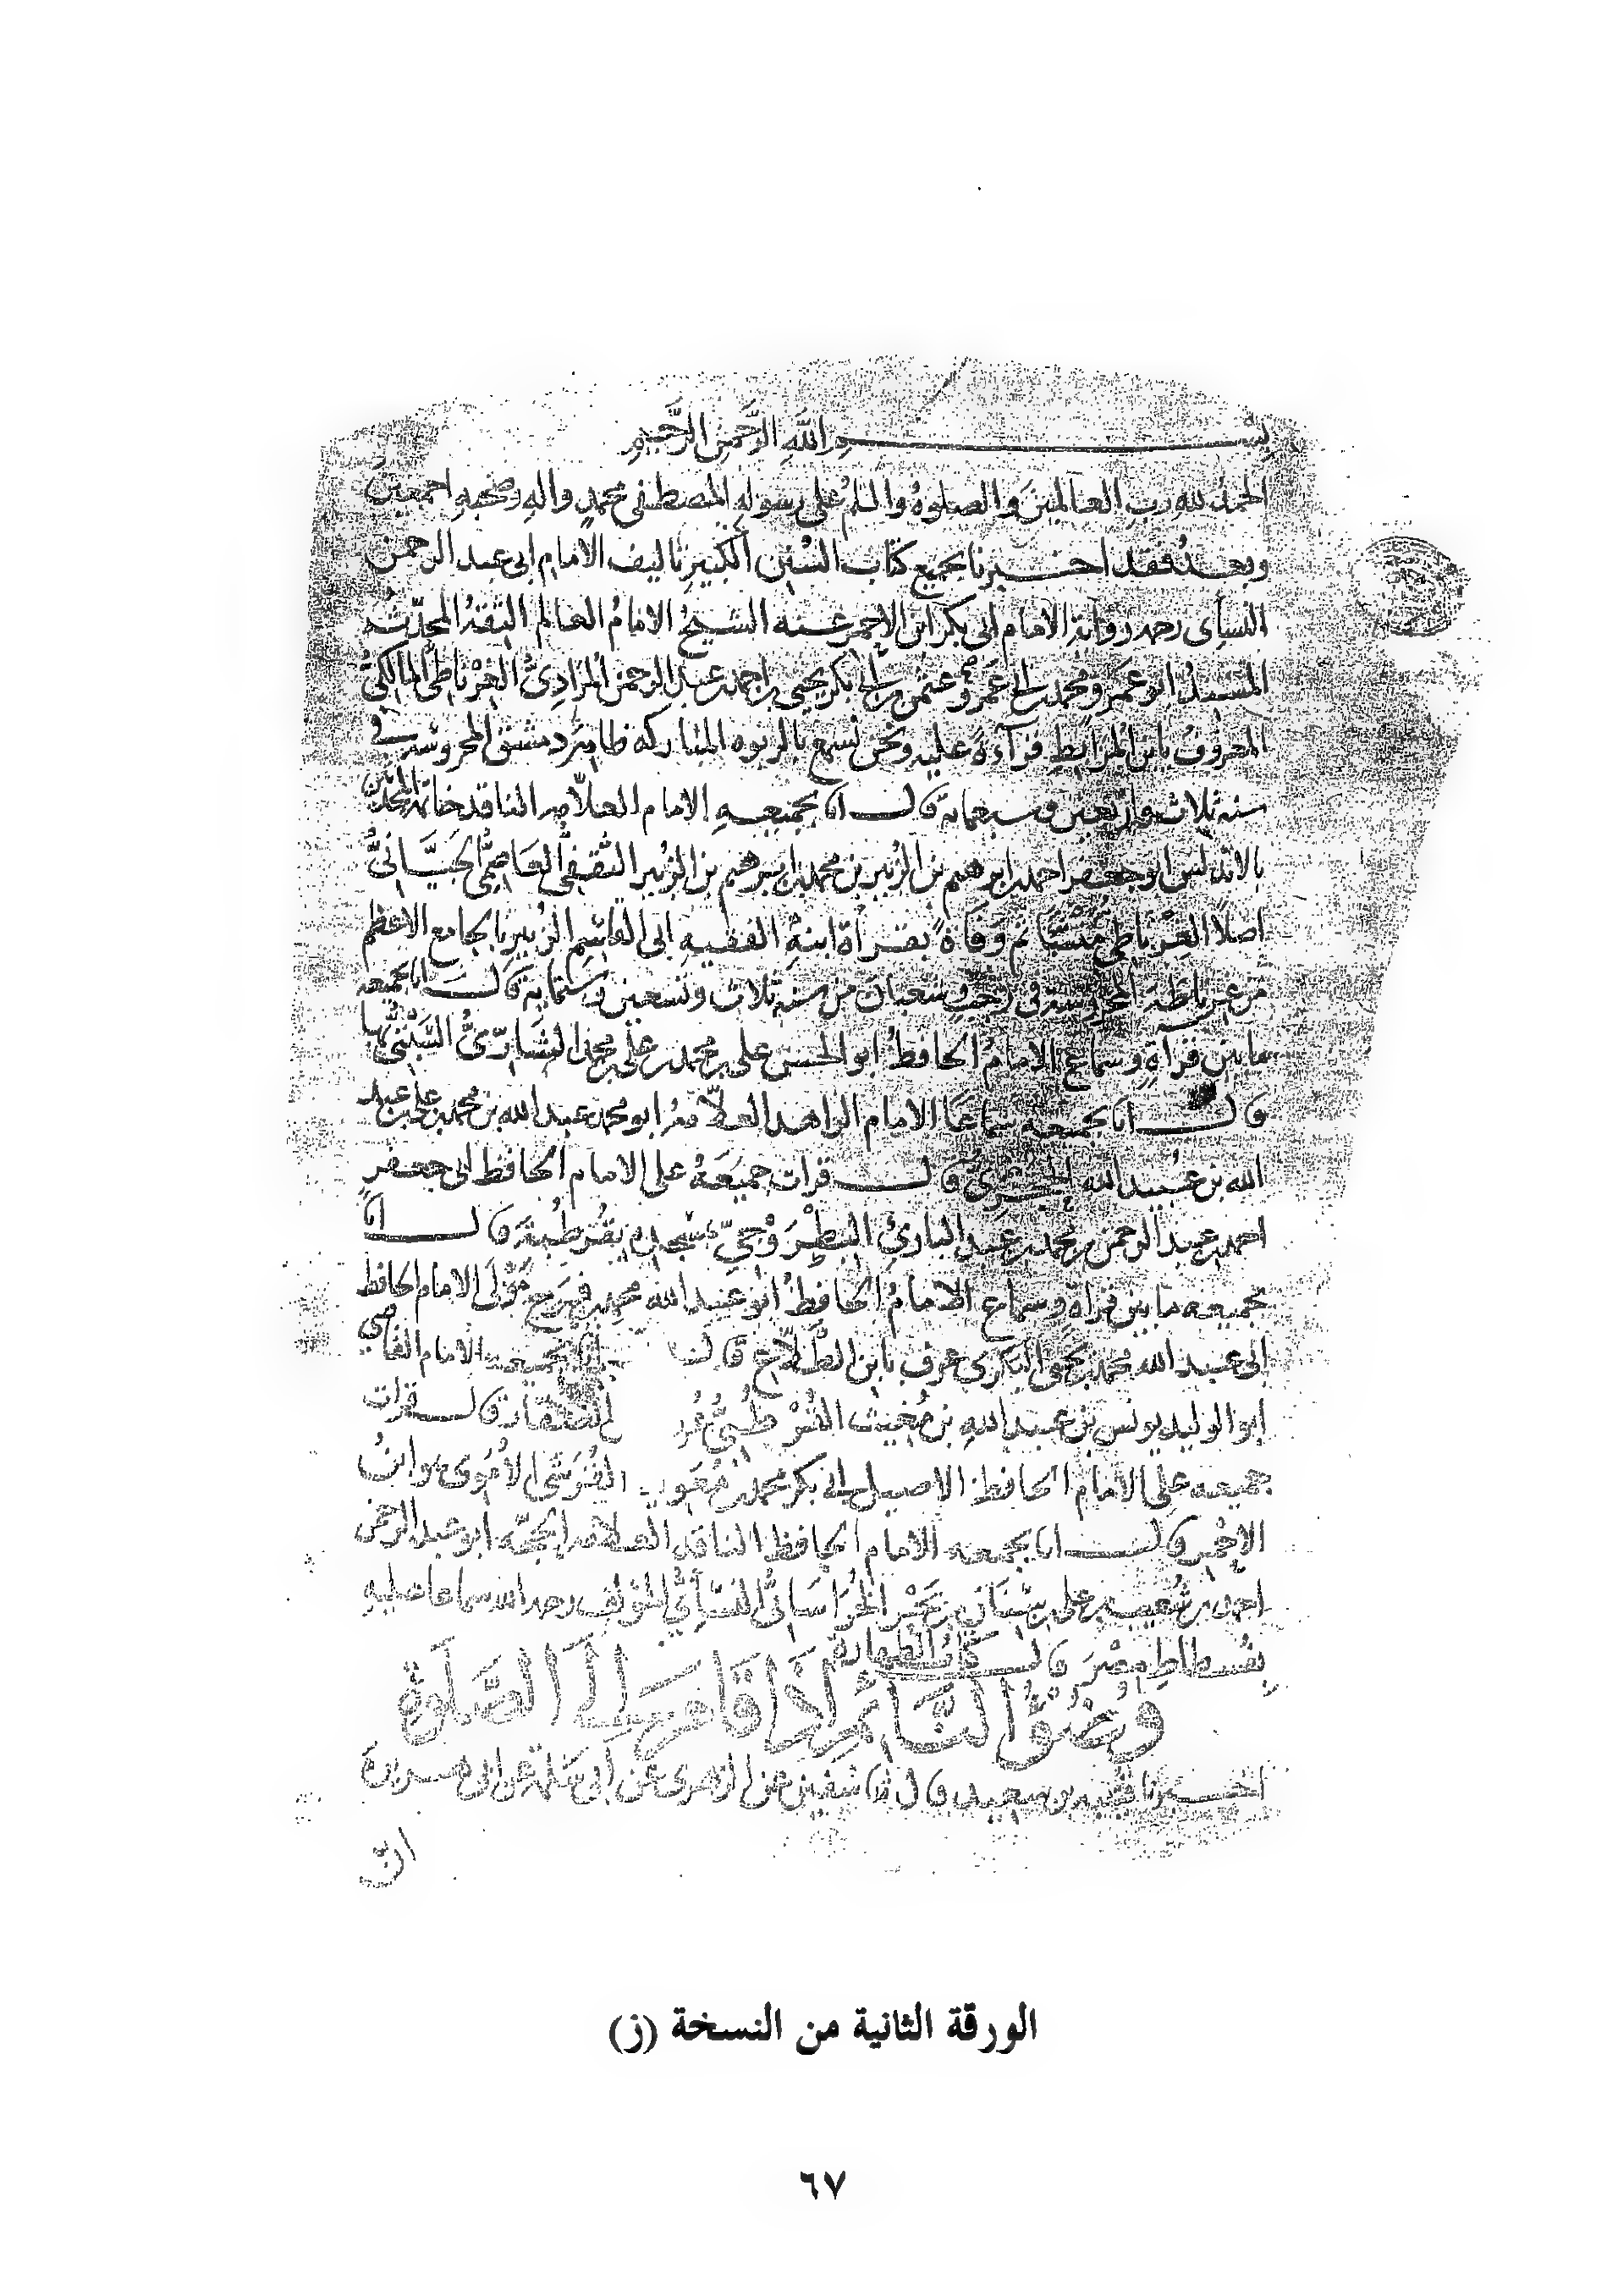 بسم الله الرحمن الرحيم
الحمد لله رب العالمين والصلوه والسلم على رسوله المصطفى محمد واله وصحبه اجمعين
وبعد فقد اخبرنا بجميع كتاب السنن الكبير تاليف الامام ابى عبد الرحمن
النساى رحمه رواية الامام ابى بكر ابن الاحمر عنه الشيخ الامام العالم الثقة المحدث
المسند ابو عمرو محمد بن ابى عمرو عثمن بن ابى بكر يحيى بن احمد بن عبد الرحمن المرادى الغرناطى المالكى
المعروف بابن المرابط قراءة عليه ونحن نسمع بالربوه المباركه ظاهر دمشق المحروسه فى
سنه ثلاث واربعين وسبعمائة قال انا بجميعه الامام العلامه الناقد خاتمة المحدثين
بالاندلس ابو جعفر احمد بن ابرهيم بن الزبير بن محمد بن ابرهيم بن الزبير الثقفى العاصمى الجيانى
اصلا الغرناطى منشا ثم وفاة بقراة ابنه الفقيه ابى القاسم الزبير بالجامع الاعظم
من غرناطة المحروسة فى رجب وشعبان من سنة ثلاث وتسعين وستماية قال انا بجميعه
ما بين قراة وسماع الامام الحافظ ابو الحسن على بن محمد بن على بن محمد الشارى السبتى بها
قال انا بجميعه سماعا الامام الزاهد العلامة ابو محمد عبد الله بن محمد بن على بن عبد
الله بن عبيد الله الحجرى قال قرات جميعه على الامام الحافظ ابى جعفر
احمد بن عبد الرحمن بن محمد بن عبد البارئ البطروجى بقرطبة قال انا
بجميعه ما بين قراة وسماع الامام الحافظ ابو عبد الله محمد بن فرج مولى الامام الحافظ
ابى عبد الله محمد بن يحيى البكرى عرف بابن الطلاع قال انا بجميعه الامام القاضى
ابو الوليد يونس بن عبد الله بن مغيث القرطبى الصفار قال قرات
جميعه على الامام الحافظ الاصيل ابى بكر محمد بن معوية القرشى الاموى هو ابن
الاحمر قال انا بجميعه الامام الحافظ الناقد العلامة الحجة ابو عبد الرحمن
احمد بن شعيب بن على بن سنان بن بحر الخراسانى النسائى المؤلف رحمه الله سماعا عليه
بفسطاط مصر قال كتاب الطهارة
وضوء النائم اذا قام الى الصلوة
اخبرنا قتيبه بن سعيد قال ثنا سفين عن الزهرى عن ابى سلمة عن ابى هريرة
ان
الورقة الثانية من النسخة (ز)
٦٧